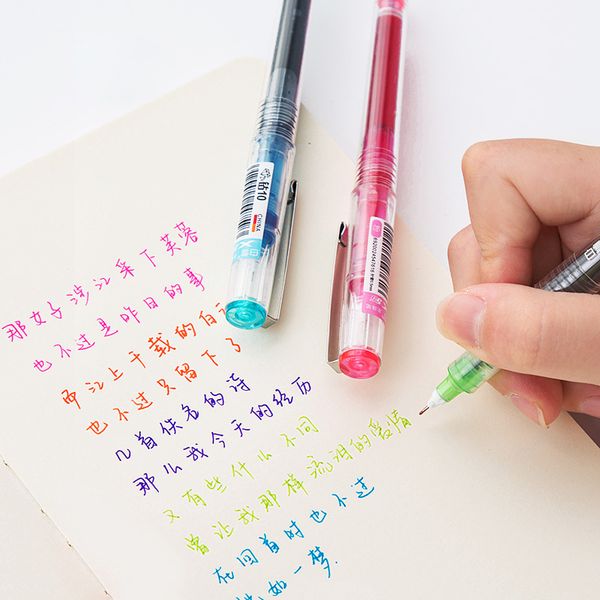 那女子涉江采下芙蓉
也不过是昨日的事
而江上千载的白
也不过只留下了
几首佚名的诗
那么我今天的经历
又有些什么不同
曾让我那样流泪的爱情
在回首时也不过
恍如一梦.
钴10
CHINA